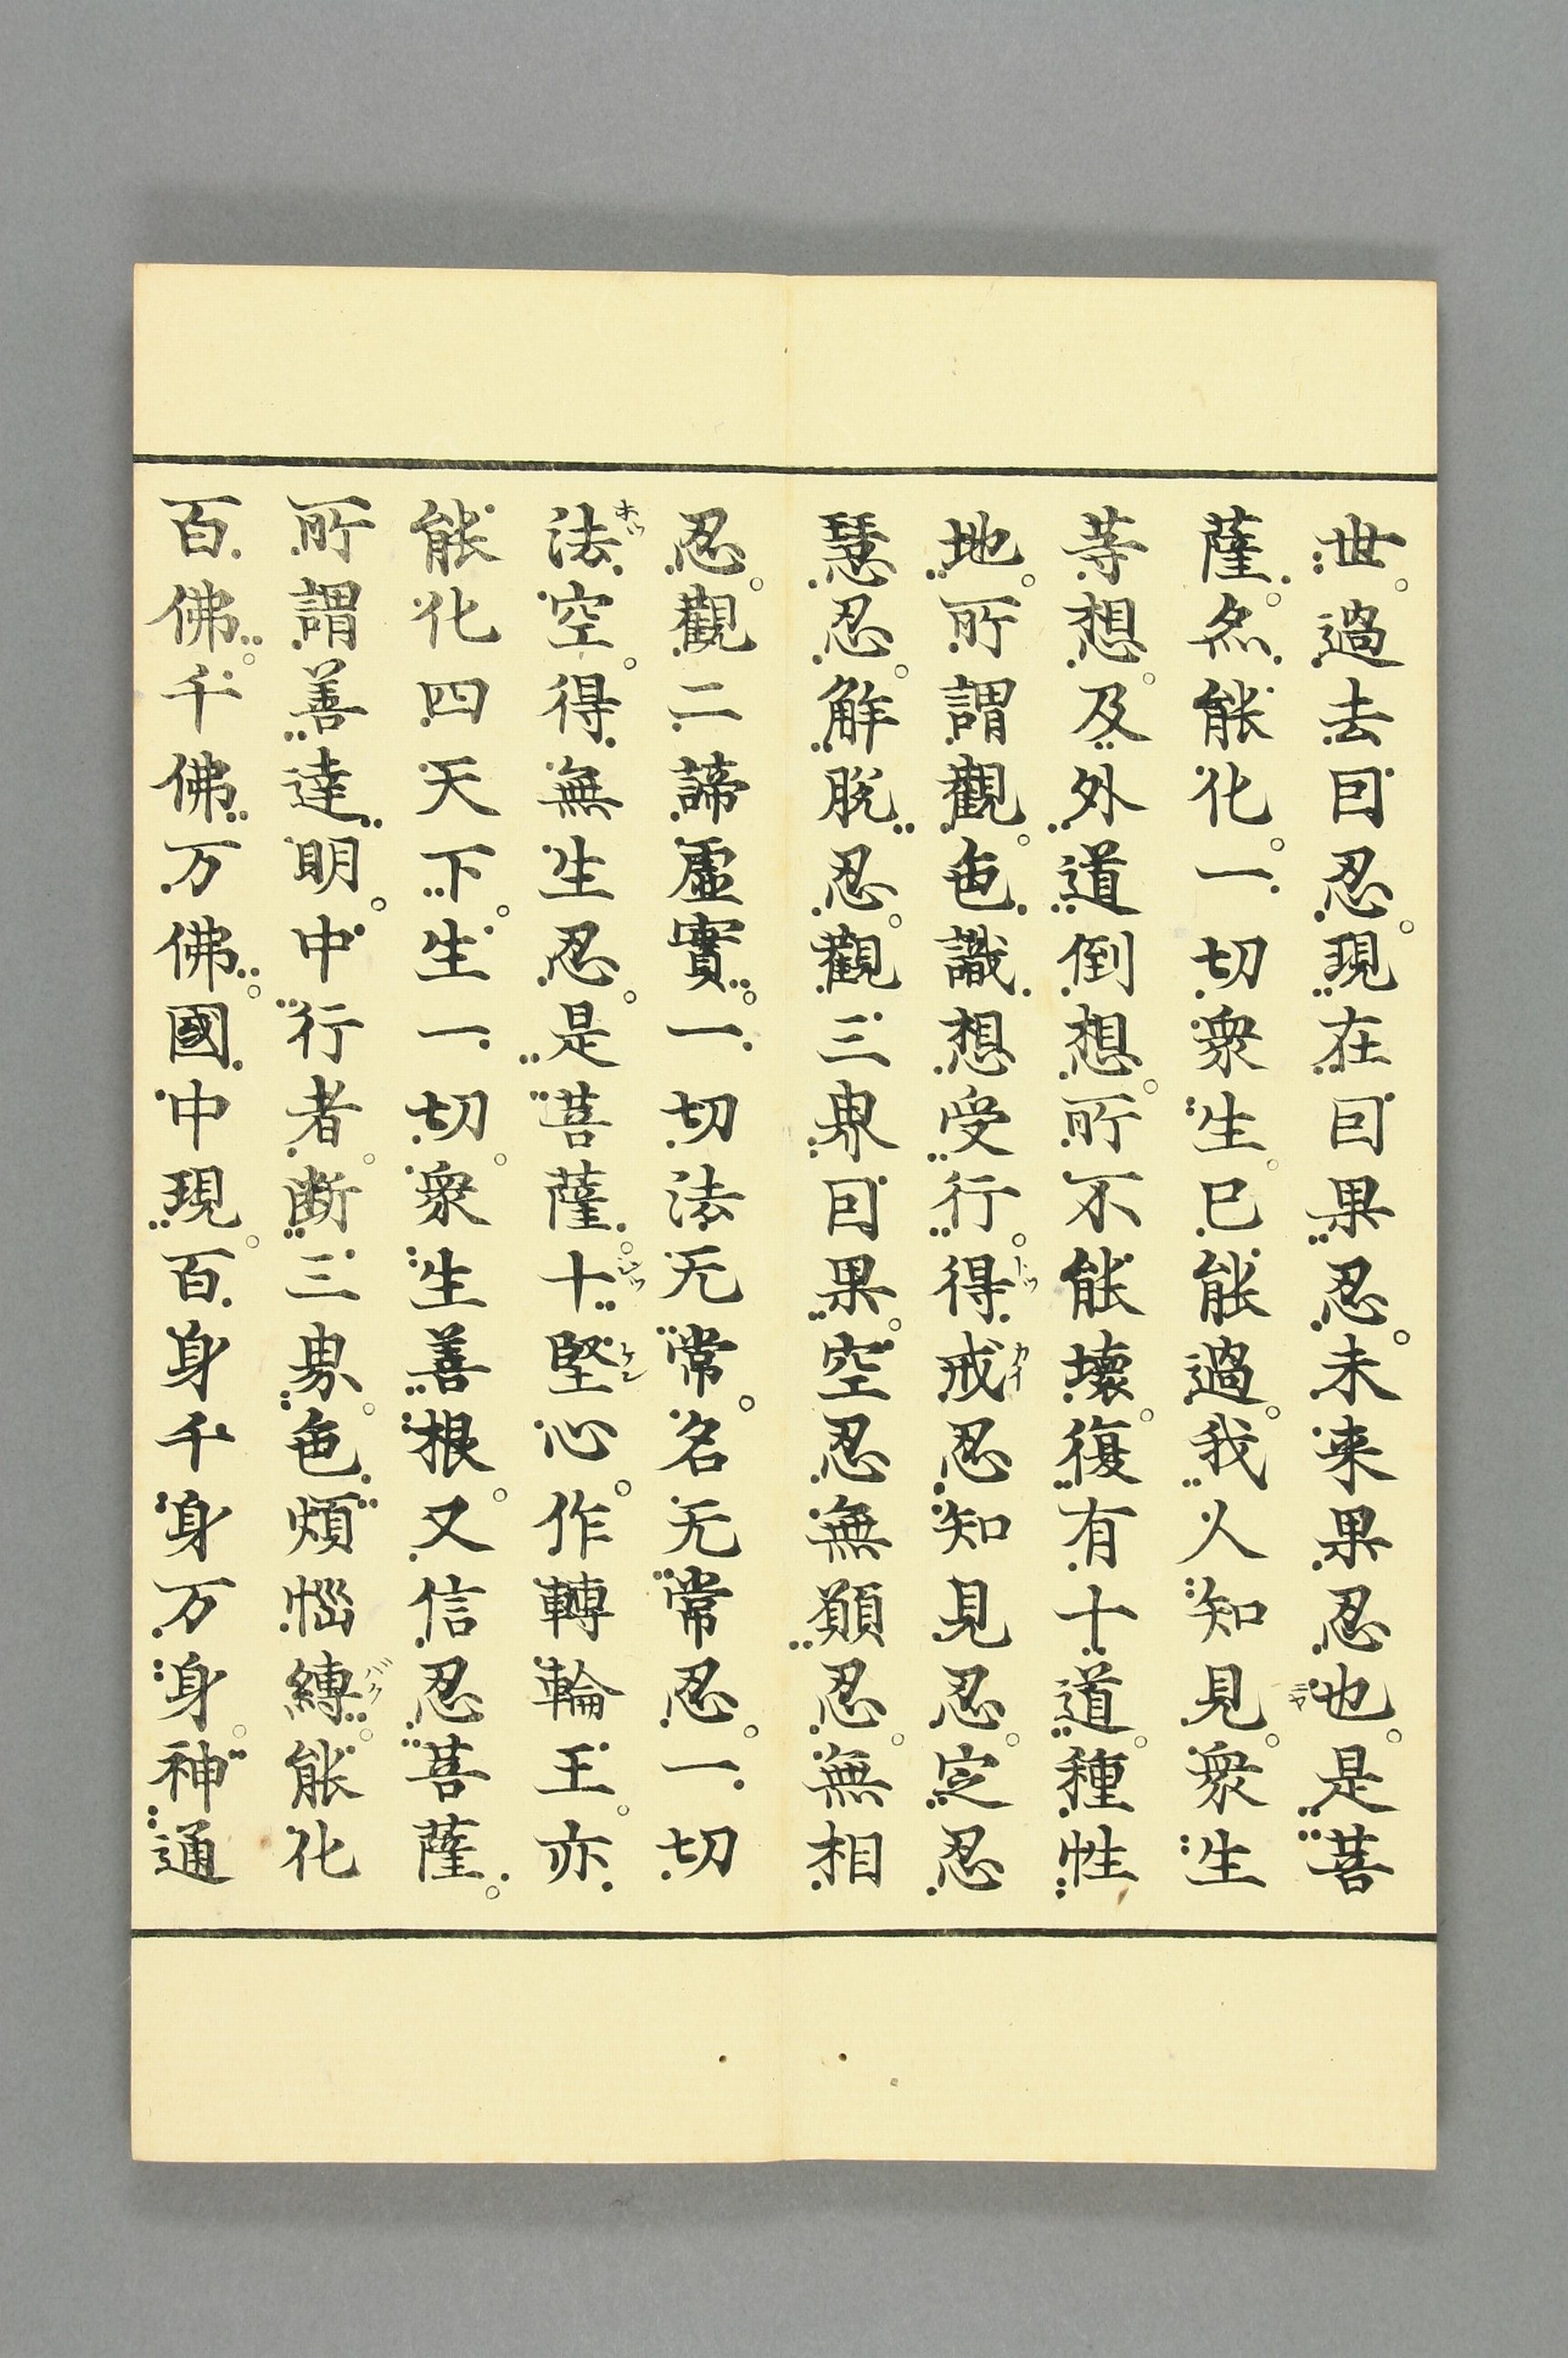 世。過去囙忍。現在囙果忍。未来果忍也。是菩
薩。亦能化。一切衆生。已能過。我人知見。衆生
等想。及外道倒想。所不能壞。復有十道。種性
カイ
地。所謂觀。色識想受行。得戒忍知見忍。定忍
慧忍。解脱忍。觀三界囙果。空忍無願忍。無相
忍。觀二諦虛實。一切法无常。名无常忍。一切
ホツ
ケン
法空。得無生忍。是菩薩。十堅心。作轉輪王。亦
能化四天下。生一切。衆生善根。又信忍菩薩。
バク
所謂善達明。中行者。断三界。色煩惱縛。能化
百佛。千佛万佛。國中現。百身千身万身。神通